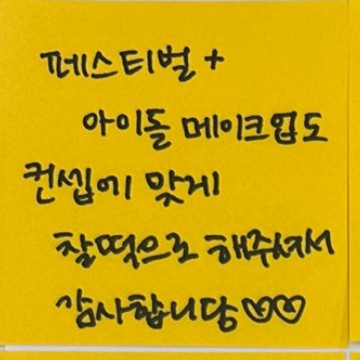 페스티벌 +
아이돌 메이크업도
컨셉에 맞게
찰떡으로 해주셔서
감사합니당♡♡